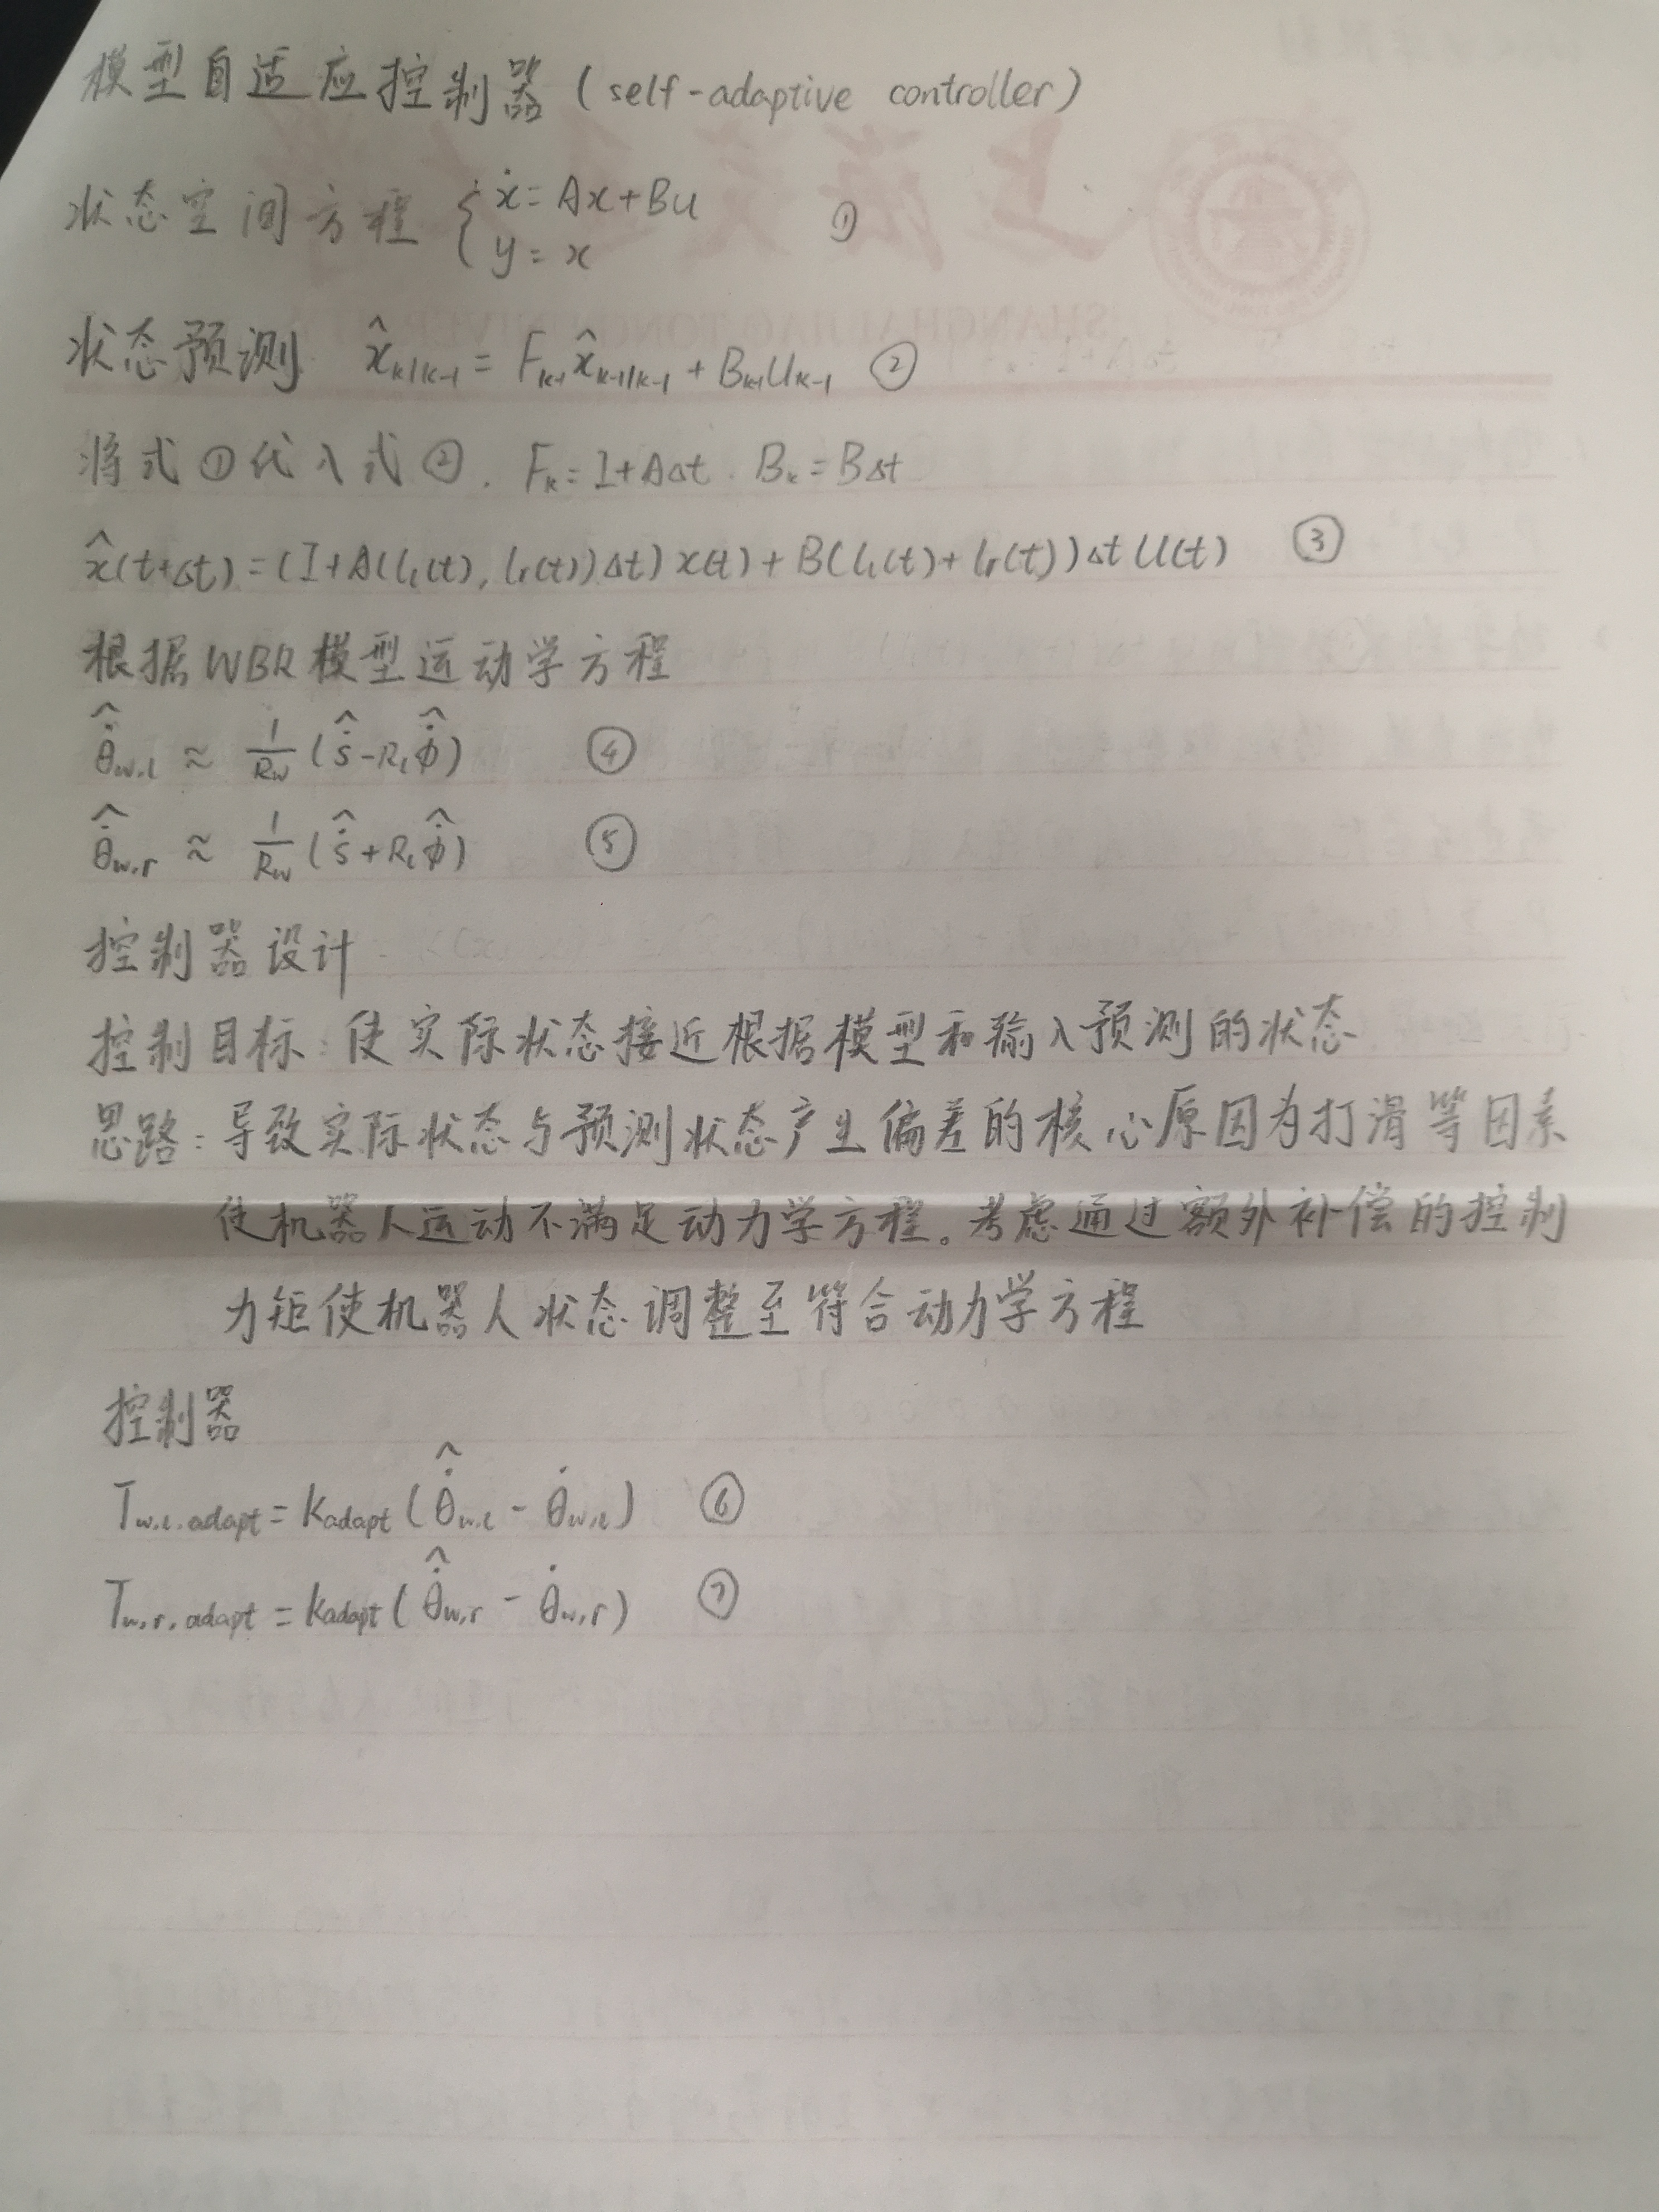 模型自适应控制器 (self-adaptive controller)
状态空间方程 { ẋ = Ax + Bu ①
y = x
状态预测 x̂ₖ|ₖ₋₁ = Fₖ₋₁x̂ₖ₋₁|ₖ₋₁ + Bₖ₋₁Uₖ₋₁ ②
将式①代入式②. Fₖ = I + AΔt . Bₖ = BΔt
x̂(t+Δt) = (I + A(lₗ(t), lᵣ(t))Δt) x(t) + B(lₗ(t) + lᵣ(t))Δt U(t) ③
根据WBR模型运动学方程
θ̇̂w,l ≈ 1/Rw (ṡ̂ - Rₗφ̇̂) ④
θ̇̂w,r ≈ 1/Rw (ṡ̂ + Rₗφ̇̂) ⑤
控制器设计
控制目标: 使实际状态接近根据模型和输入预测的状态
思路: 导致实际状态与预测状态产生偏差的核心原因为打滑等因素
使机器人运动不满足动力学方程。考虑通过额外补偿的控制
力矩使机器人状态调整至符合动力学方程
控制器
Tw,l,adapt = Kadapt (θ̇̂w,l - θ̇w,l) ⑥
Tw,r,adapt = Kadapt (θ̇̂w,r - θ̇w,r) ⑦